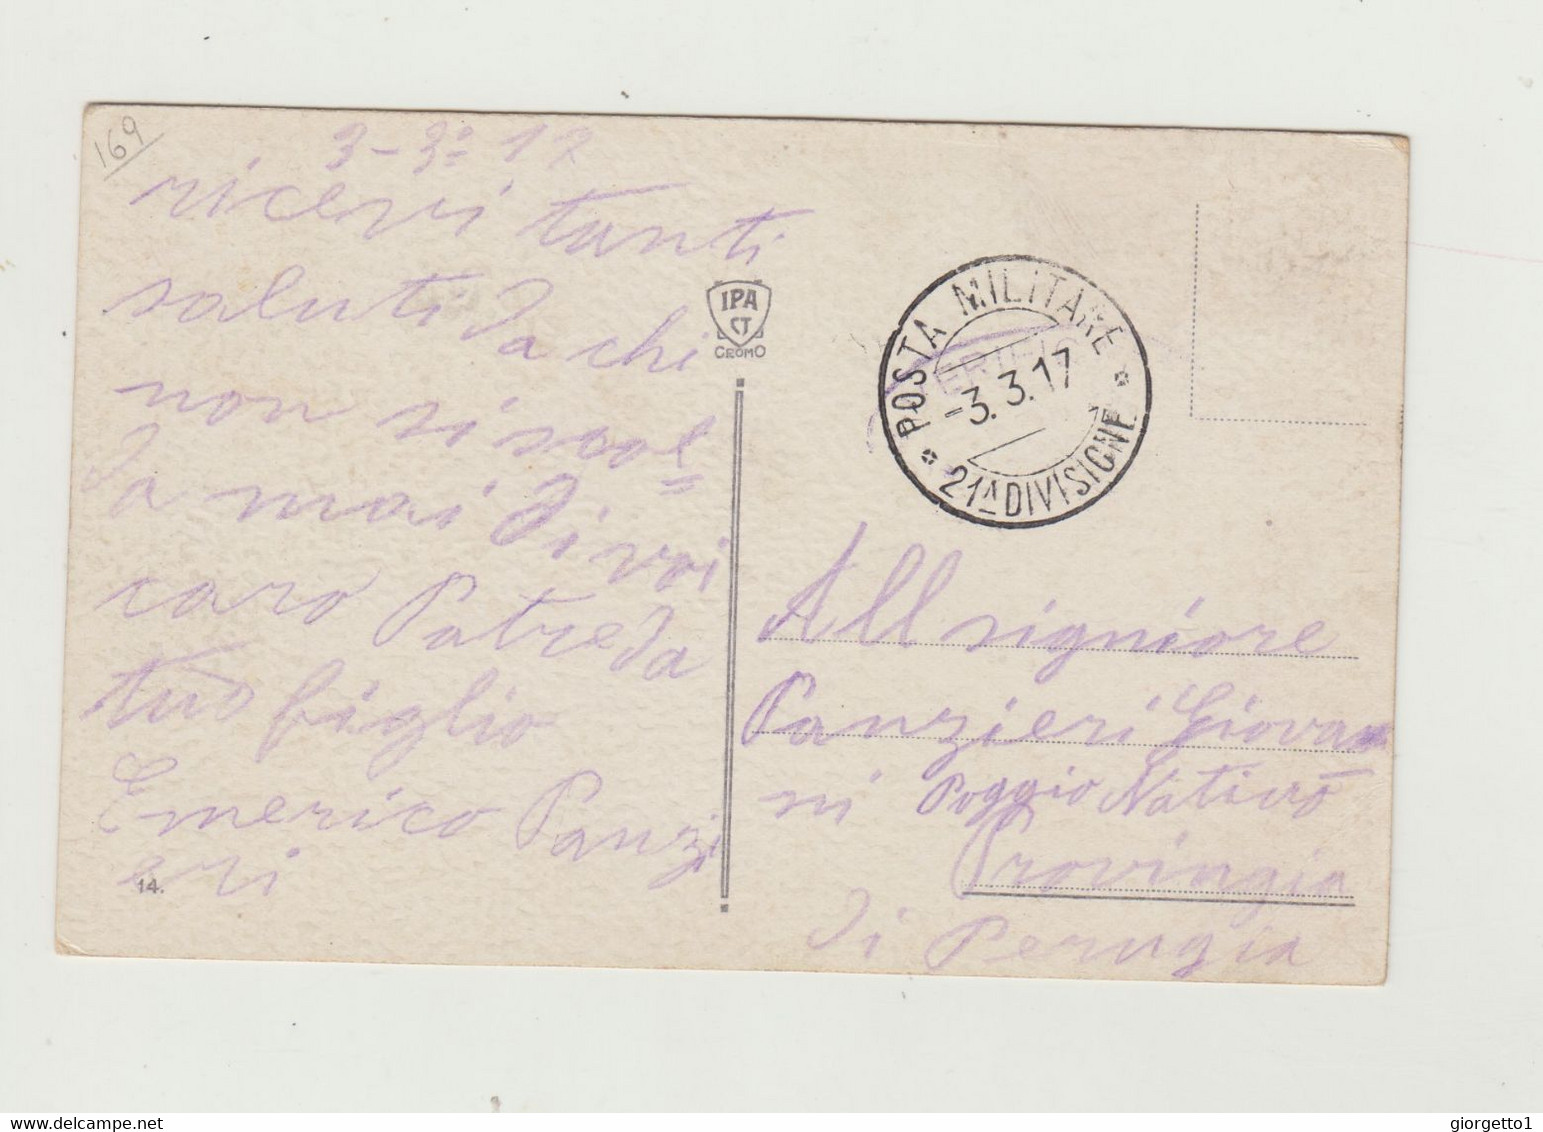 169
3-3° 17
ricevi tanti
saluti da chi
non si scol=
da mai di voi
caro Patre da
tuo figlio
Emerico Panzi
eri
14.
IPA
CT
CROMO
POSTA MILITARE
-3.3.17
21ᴬ DIVISIONE
All signiore
Panzieri Giovan
ni Poggio Nativo
Provingia
di Perugia
giorgetto1